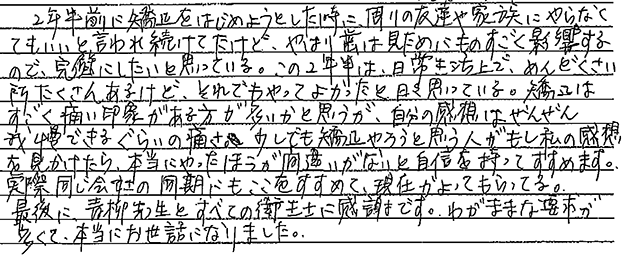 2年半前に矯正をはじめようとした時に、周りの友達や家族にやらなく
てもいいと言われ続けてたけど、やはり歯は見ためにものすごく影響する
ので、完璧にしたいと思っている。この2年半は、日常生活上で、めんどくさい
所たくさんあるけど、それでもやってよかったと日々思っている。矯正は
すごく痛い印象がある方が多いかと思うが、自分の感想はぜんぜん
我慢できるぐらいの痛さ 少しでも矯正やろうと思う人がもし私の感想
を見かけたら、本当にやったほうが間違いがないと自信を持ってすすめます。
実際同じ会社の同期にもここをすすめて、現在がよってもらってる。
最後に、青柳先生とすべての衛生士に感謝です。わがままな要求が
多くて、本当にお世話になりました。